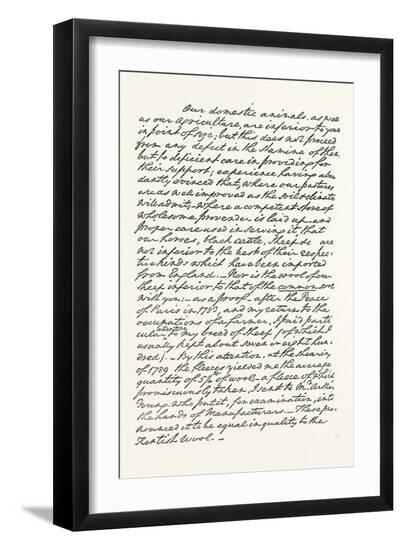 Our domestic animals, as well
as our agriculture, are inferior to yours
in point of size; but this does not proceed
from any defect in the stamina of them,
but to deficient care in providing for
their support; experience having abun
dantly evinced that, where our pastures
are as well improved as the soil & climate
will admit,—where a competent store of
wholesome provender is laid up—and
proper care used in serving it, that
our horses, black cattle, sheep &c are
not inferior to the best of their respec-
tive kinds which have been imported
from England.—Nor is the wool of our
sheep inferior to that of the common sort
with you;—as a proof—after the Peace
of Paris in 1783, and my return to the
occupations of a farmer, I paid parti
cular attention to my breed of sheep (of which I
usually kept about seven or eight hun-
dred).—By this attention, at the shearing
of 1789, the fleeces yielded me the average
quantity of 5¼ lb of wool—a fleece of which
promiscuously taken, I sent to Mr. Arthur
Young, who put it, for examination, into
the hands of Manufacturers.—These pro-
nounced it to be equal in quality to the
Kentish Wool.—